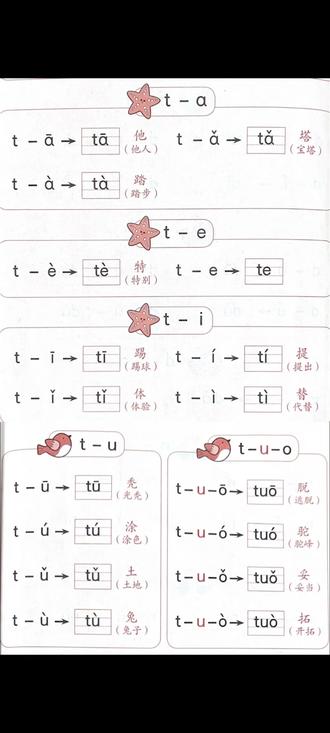 t - ɑ
t - ā → tā 他 (他人) t - ǎ → tǎ 塔 (宝塔)
t - à → tà 踏 (踏步)
t - e
t - è → tè 特 (特别) t - e → te
t - i
t - ī → tī 踢 (踢球) t - í → tí 提 (提出)
t - ǐ → tǐ 体 (体验) t - ì → tì 替 (代替)
t - u
t - ū → tū 秃 (光秃)
t - ú → tú 涂 (涂色)
t - ǔ → tǔ 土 (土地)
t - ù → tù 兔 (兔子)
t-u-o
t-u-ō → tuō 脱 (逃脱)
t-u-ó → tuó 驼 (驼峰)
t-u-ǒ → tuǒ 妥 (妥当)
t-u-ò → tuò 拓 (开拓)